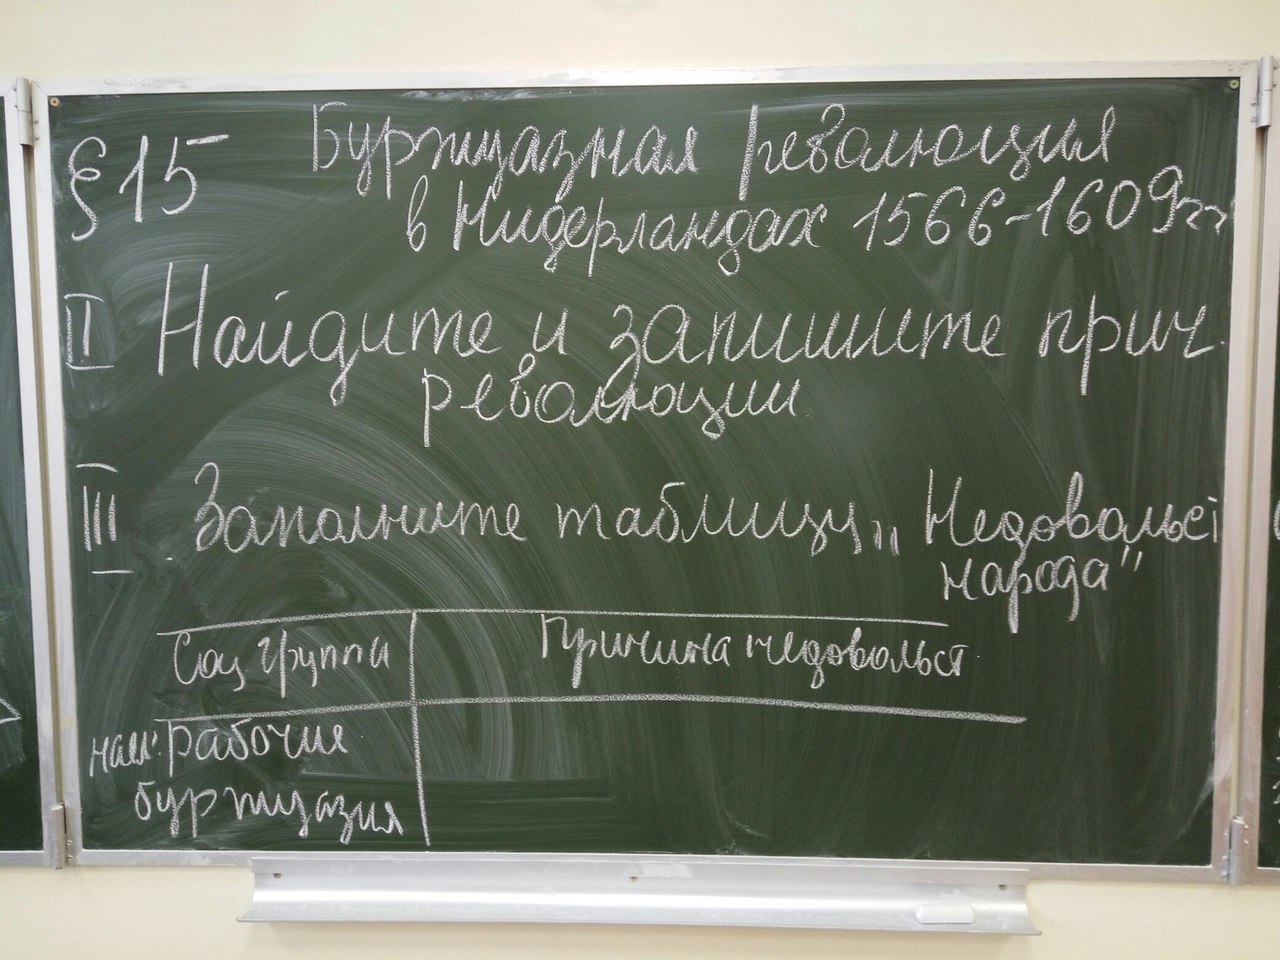 § 15 Буржуазная революция
в Нидерландах 1566-1609гг
I Найдите и запишите прич.
революции
III Заполните таблицу „Недовольст
народа"
Соц группа Причина недовольст.
наем. рабочие
буржуазия